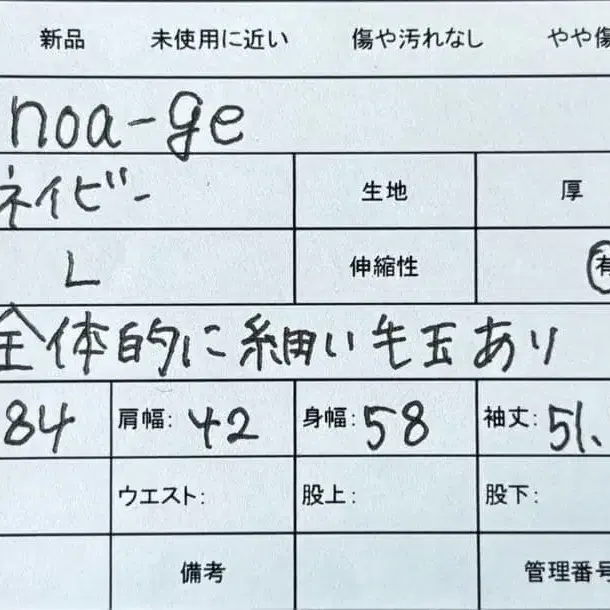 新品 未使用に近い 傷や汚れなし やや傷
noa-ge
ネイビー 生地 厚
L 伸縮性 有
全体的に細い毛玉あり
84 肩幅: 42 身幅: 58 袖丈: 51.
ウエスト: 股上: 股下:
備考 管理番号